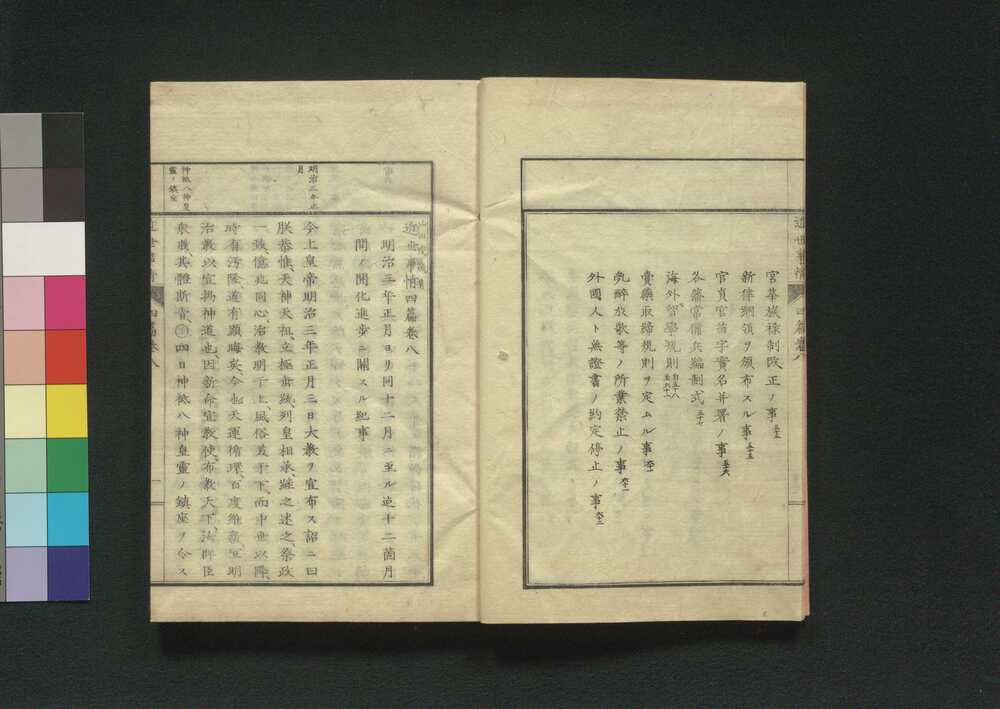 宮華族祿制改正ノ事
新律綱領ヲ頒布スル事
官員官苗字實名并署ノ事
各藩常備兵編制式
海外留學規則
賣藥取締規則ヲ定ムル事
乱醉放歌等ノ所業禁止ノ事
外國人ト無證書ノ約定停止ノ事
近世事情 四篇卷八
近世事情四篇卷八
明治三年正月ヨリ同十二月ニ至ル迄十二箇月
間ノ開化進歩ニ關スル紀事
明治三年正月
今上皇帝明治三年正月三日大教ヲ宣布ス詔ニ曰
朕恭惟天神天祖立極垂統列皇相承繼之述之祭政
一致億兆同心治教明于上風俗美于下而中世以降
時有汚隆道有顯晦矣今也天運循環百度維新宜明
治教以宣揚神道也因新命宣教使布教天下汝群臣
衆庶其體斯旨 四日神祇八神皇靈ノ鎮座ヲ令ス
神祇八神皇靈ノ鎮座
四篇卷八